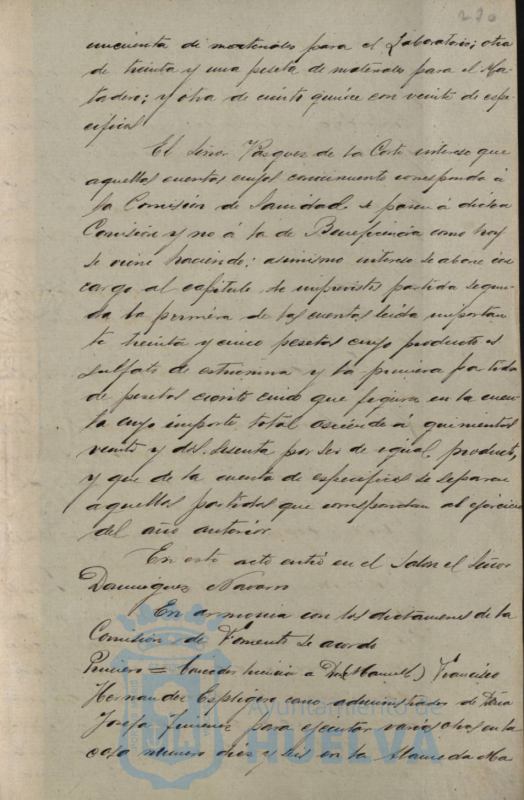 270
cincuenta de materiales para el Laboratorio; otra
de treinta y una peseta de materiales para el Ma-
tadero; y otra de ciento quince con veinte de espe-
cificos
El Señor Vazquez de la Corte intereso que
aquellas cuentas cuyo conocimiento corresponda á
la Comisión de Sanidad se pasen á dicha
Comisión y no á la de Beneficencia como hoy
se viene haciendo; asimismo intereso se abone con
cargo al capitulo de imprevistos partida segun-
da la primera de las cuentas leida importan
te treinta y cinco pesetas cuyo producto es
sulfato de estricnina y la primera partida
de pesetas ciento cinco que figura en la cuen
ta cuyo importe total asciende á quinientos
veinte y dos sesenta por ser de igual producto,
y que de la cuenta de especificos se separen
aquellas partidas que correspondan al ejercicio
del año anterior
En este acto entró en el Salon el Señor
Dominguez Navarro
En armonia con los dictamenes de la
Comisión de Fomento se acordo
Primero = Conceder licencia a Don (Manuel) Francisco
Hernandez Espligero como administrador de Doña
Josefa Jimenez para ejecutar varias obras en la
casa numero diez y seis en la Alameda Ma
Ayuntamiento de
HUELVA